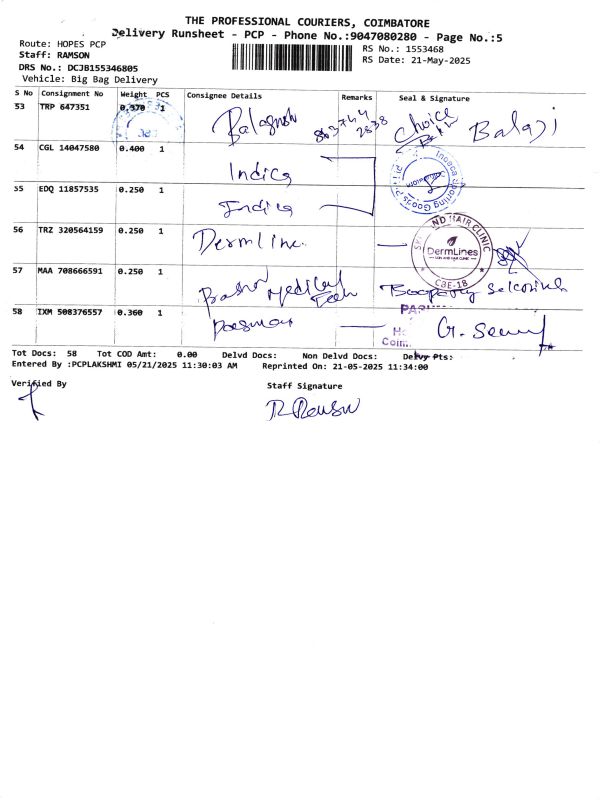 THE PROFESSIONAL COURIERS, COIMBATORE
Delivery Runsheet - PCP - Phone No.:9047080280 - Page No.:5
Route: HOPES PCP
Staff: RAMSON
DRS No.: DCJB155346805
Vehicle: Big Bag Delivery
RS No.: 1553468
RS Date: 21-May-2025
S No Consignment No Weight PCS Consignee Details Remarks Seal & Signature
53 TRP 647351 0.370 1 Choice Balaji
54 CGL 14047580 0.400 1 Indica
55 EDQ 11857535 0.250 1 Indica
56 TRZ 320564159 0.250 1 Dermline
DermLines
SKIN AND HAIR CLINIC
CBE-18
57 MAA 708666591 0.250 1 Medical
58 IXM 508376557 0.360 1
Tot Docs: 58 Tot COD Amt: 0.00 Delvd Docs: Non Delvd Docs: Delvy Pts:
Entered By :PCPLAKSHMI 05/21/2025 11:30:03 AM Reprinted On: 21-05-2025 11:34:00
Verified By
Staff Signature